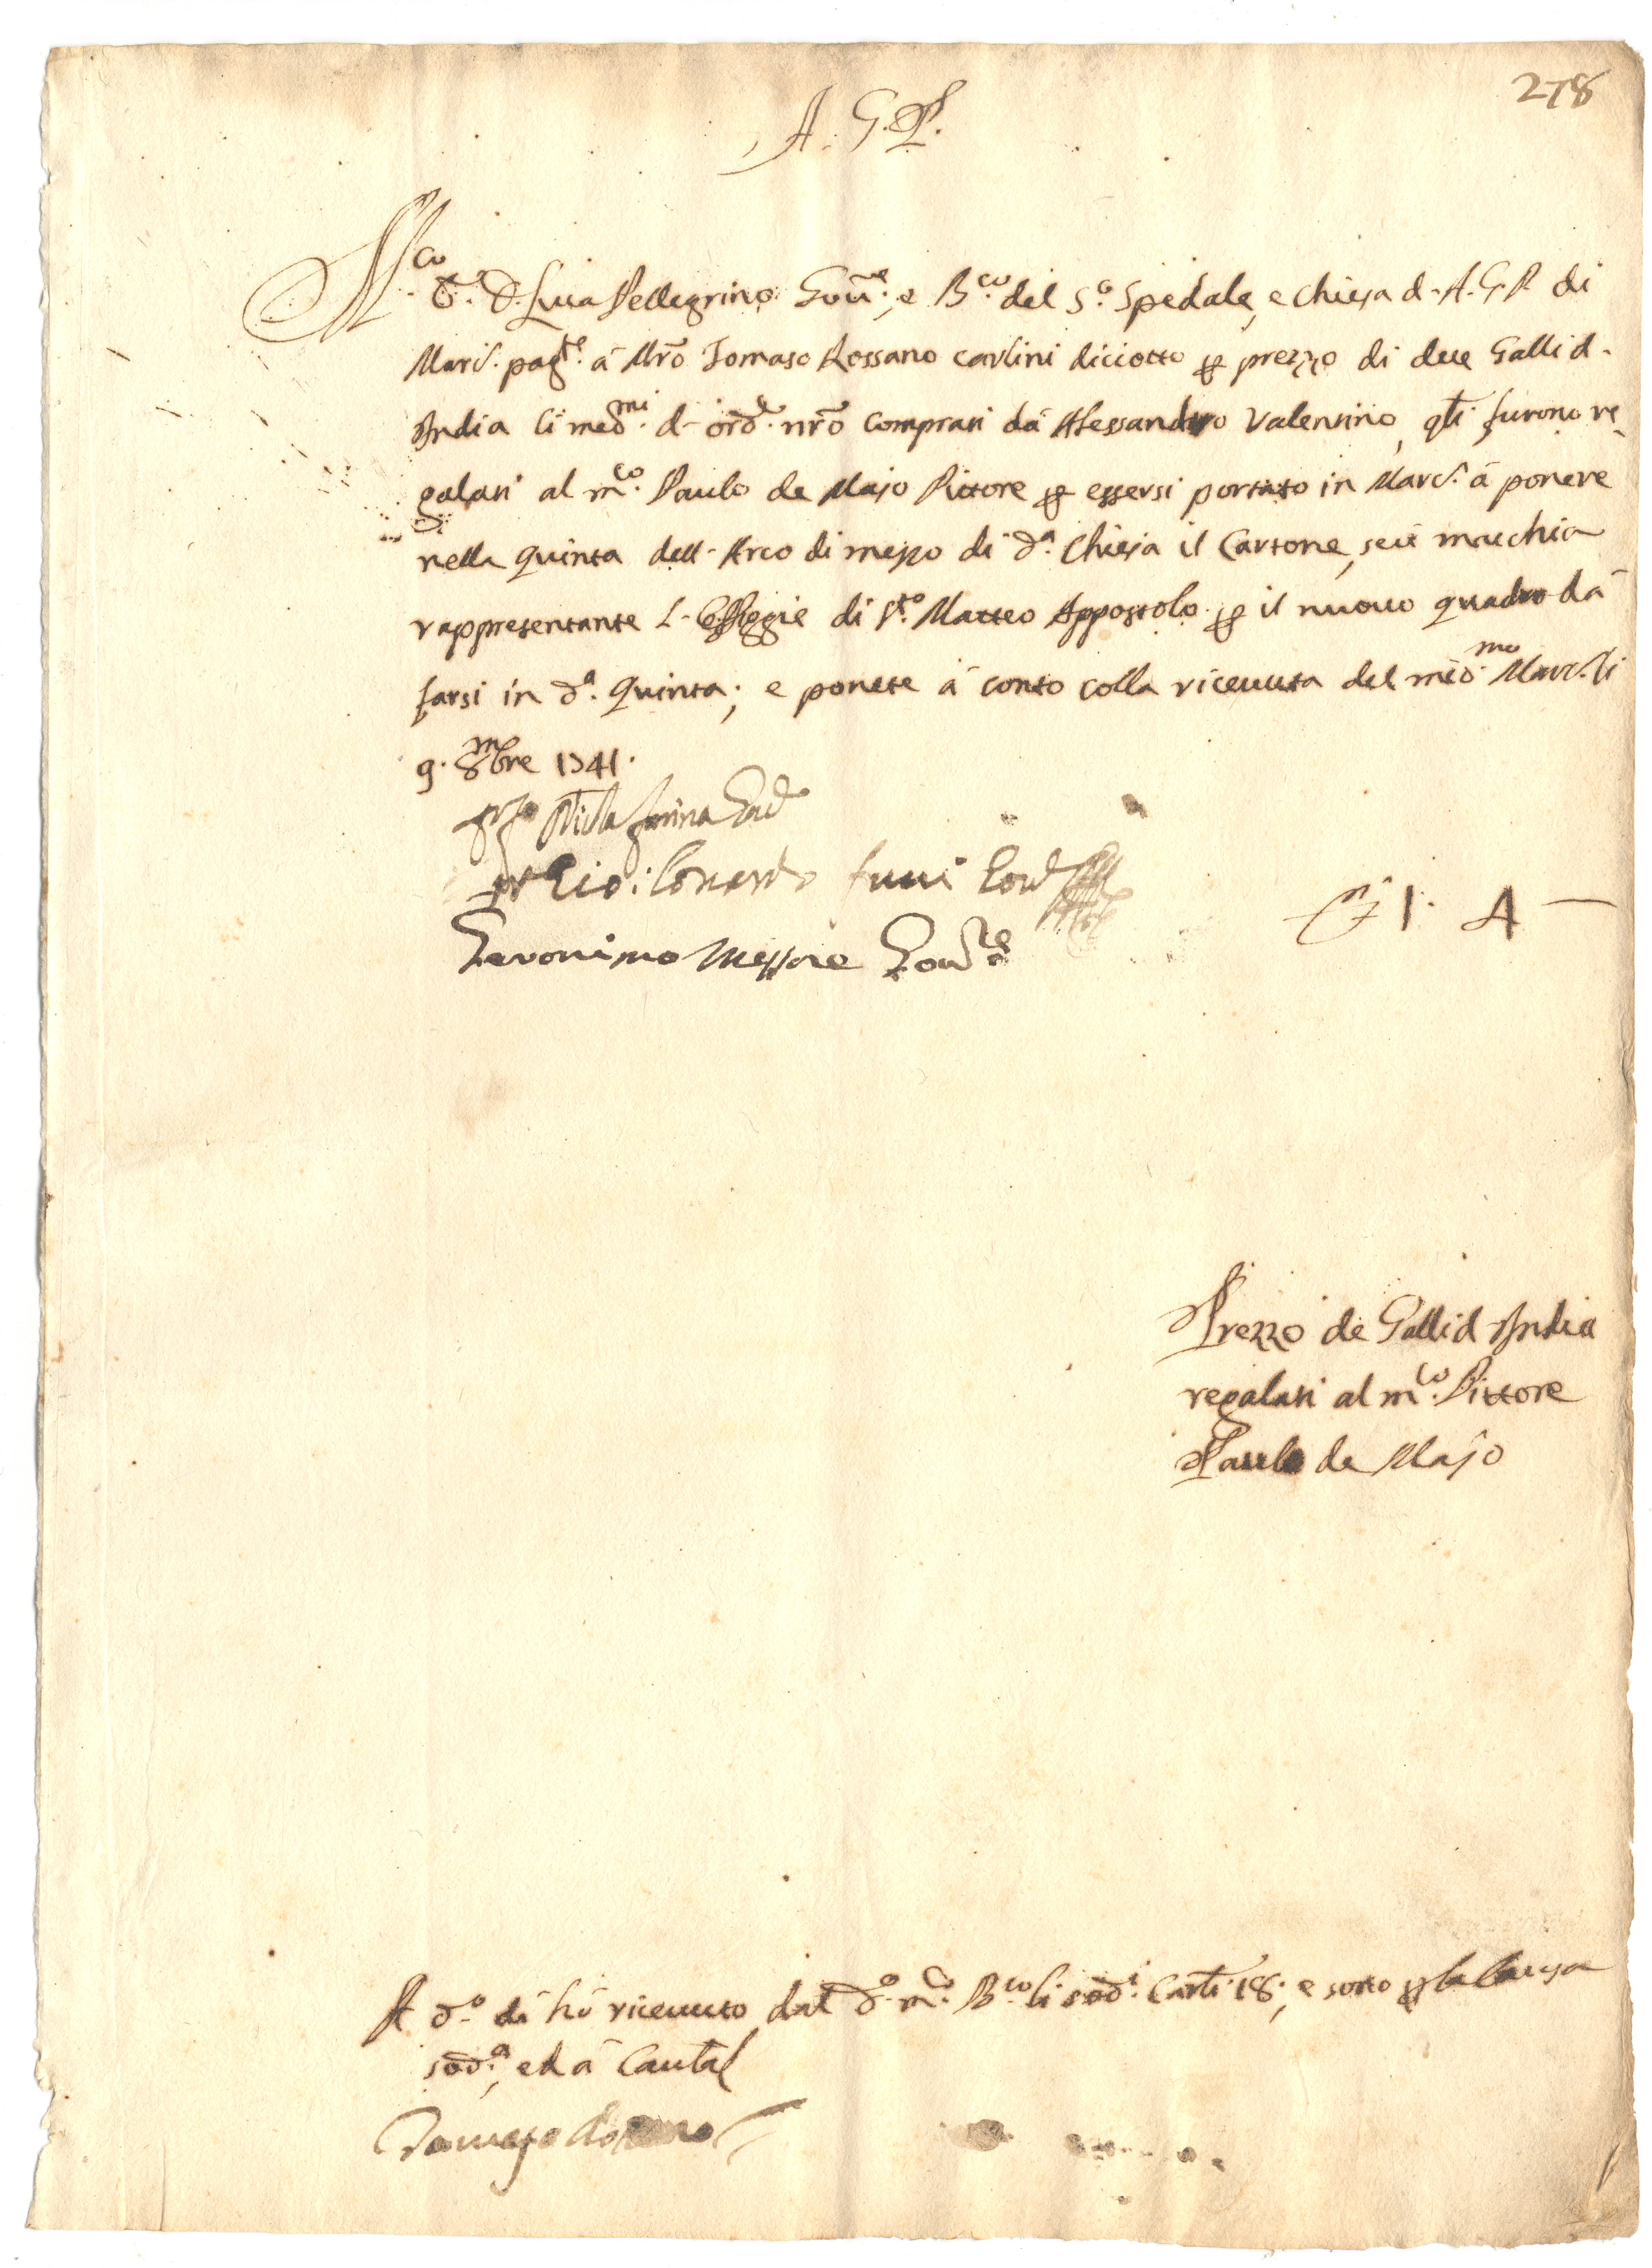 278
A. G. P.
M.co S.r D. Luca Pellegrino Gov.re, e B.co del S.o Spedale, e Chiesa d- A. G. P. di
Marc.e pag.te à Mrõ Tomaso Rossano carlini diciotto per prezzo di due Galli d-
India li med.mi d- ord.e nrõ comprati dà Alessandro Valentino, qli furono re
galati al m.co Paulo de Majo Pittore per essersi portato in Marc.e à ponere
nella quinta dell- Arco di mezzo di d.a Chiesa il Cartone, seu macchia
rappresentante l- Effiggie di S.to Matteo Appostolo per il nuovo quadro dà
farsi in d.a quinta; e ponete à conto colla ricevuta del med.mo Marc.e li
9. 8mbre 1741.
Nicla farina Gov.
Gio: Lonardo Gov.
Geronimo Messore Gov.re
1. 4 —
Prezzo de Galli d India
regalati al m.co Pittore
Paulo de Majo
A d.o dì hò ricevuto dal d.o m.co B.co li sod.i Carli 18; e sono per la causa
sod.a, ed à Cautal
Tomaso Rossano